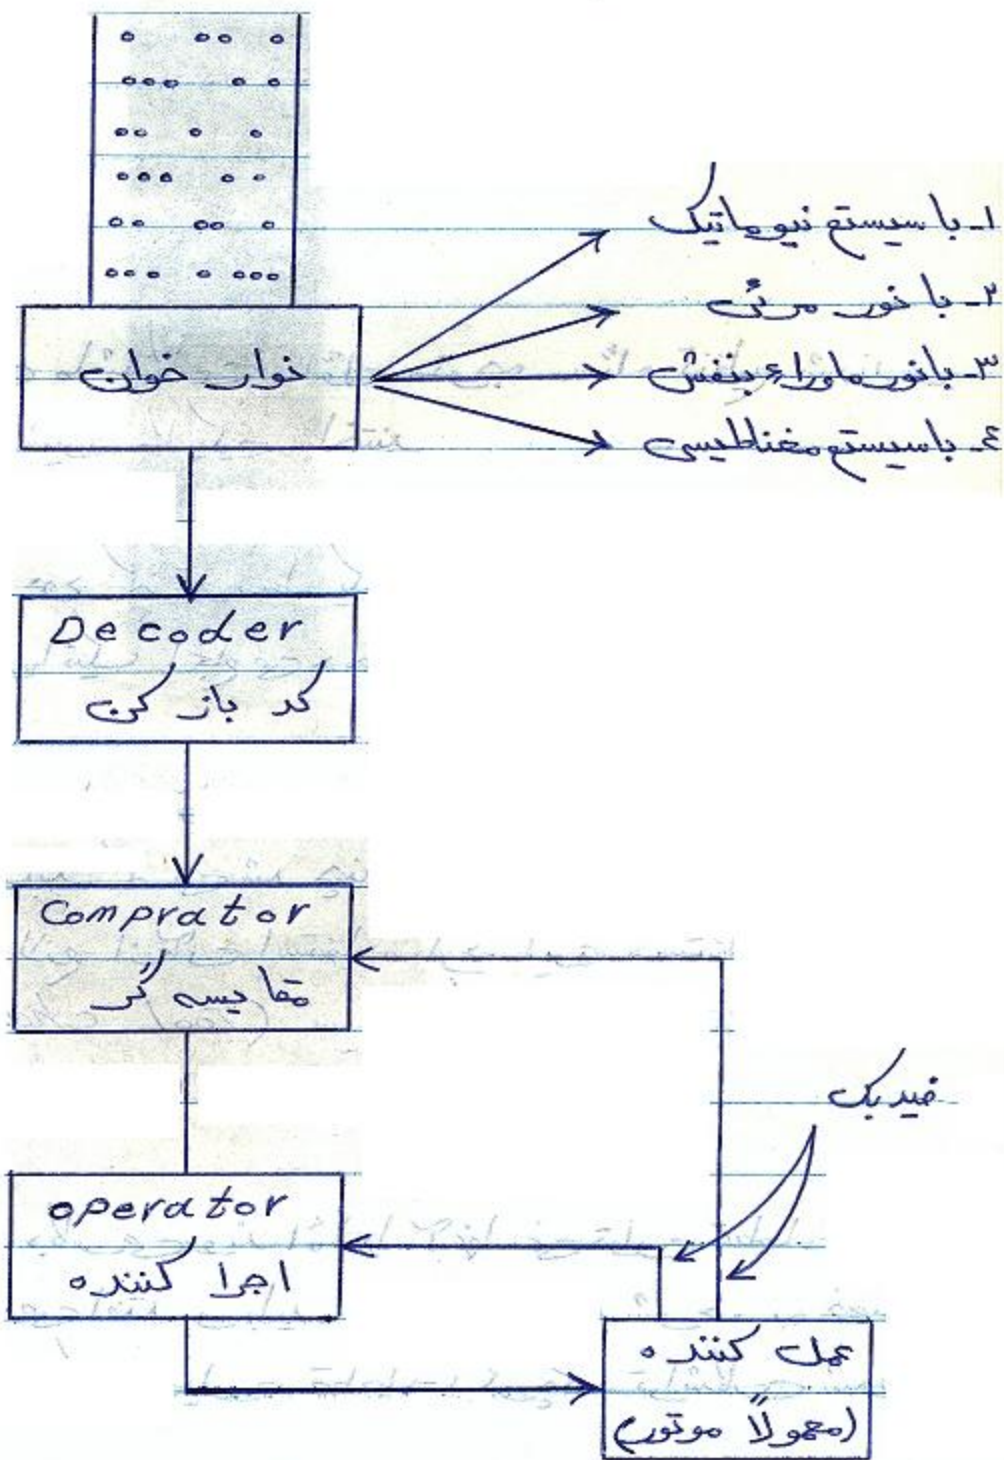 ۱- با سیستم نیوماتیک
۲- با نور مرئی
۳- با نور ماوراء بنفش
۴- با سیستم مغناطیسی
نوار خوان
Decoder
کد باز کن
Comprator
مقایسه گر
فیدبک
operator
اجرا کننده
عمل کننده
(معمولاً موتور)